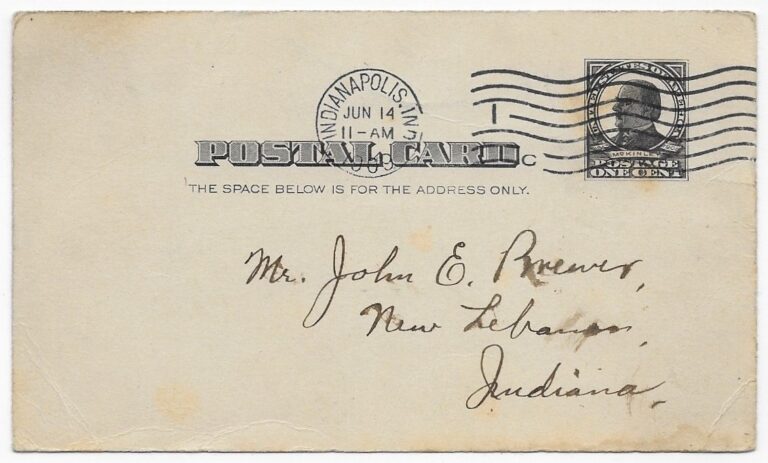 INDIANAPOLIS, IND.
JUN 14
11-AM
1909
1 C
UNITED STATES OF AMERICA
McKINLEY
POSTAGE
ONE CENT
POSTAL CARD
THE SPACE BELOW IS FOR THE ADDRESS ONLY.
Mr. John E. Brewer,
New Lebanon,
Indiana.